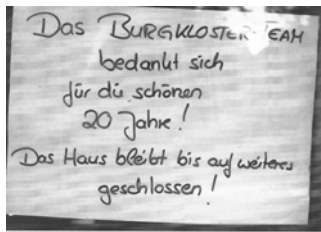 Das BURGKLOSTER TEAM
bedankt sich
für die schönen
20 Jahre!
Das Haus bleibt bis auf weiteres
geschlossen!